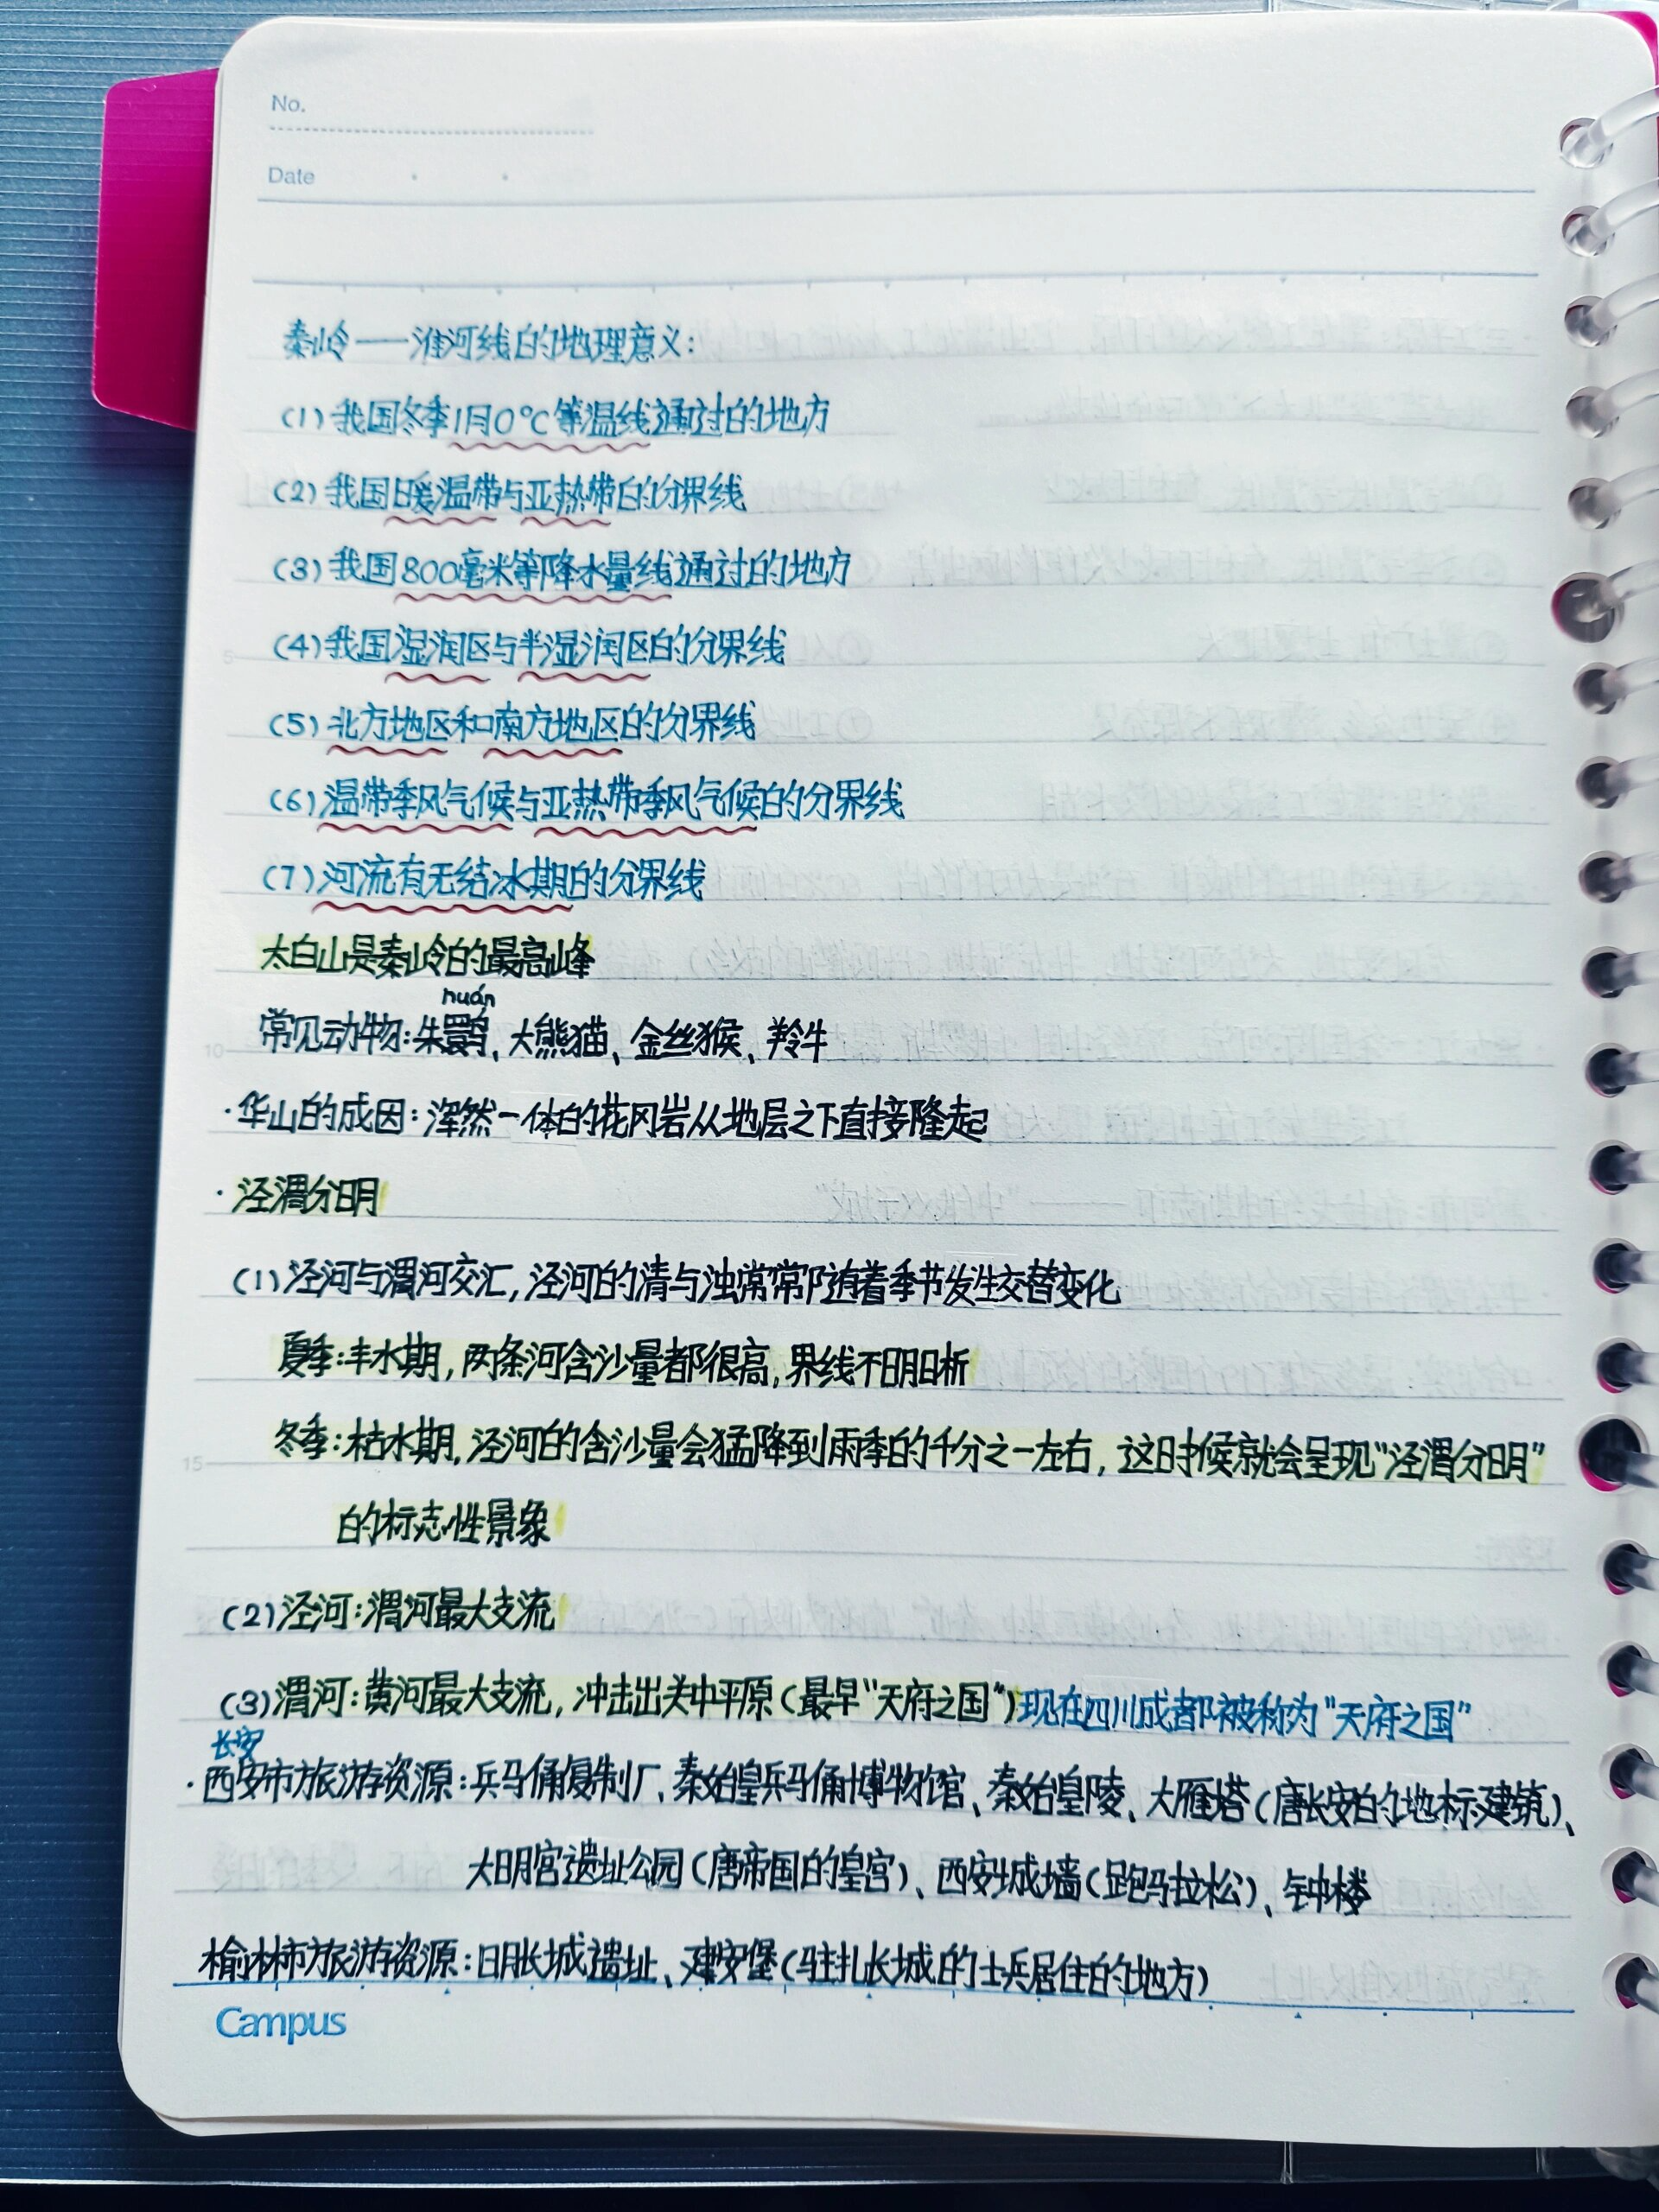 No.
Date
秦岭——淮河线的地理意义:
(1)我国冬季1月0℃等温线通过的地方
(2)我国暖温带与亚热带的分界线
(3)我国800毫米等降水量线通过的地方
(4)我国湿润区与半湿润区的分界线
5
(5)北方地区和南方地区的分界线
(6)温带季风气候与亚热带季风气候的分界线
(7)河流有无结冰期的分界线
太白山是秦岭的最高峰
huán
常见动物:朱鹮、大熊猫、金丝猴、羚牛
10
·华山的成因:浑然一体的花冈岩从地层之下直接隆起
·泾渭分明
(1)泾河与渭河交汇,泾河的清与浊常常随着季节发生交替变化
夏季:丰水期,两条河含沙量都很高,界线不明晰
冬季:枯水期,泾河的含沙量会猛降到雨季的千分之一左右,这时候就会呈现“泾渭分明”
15
的标志性景象
(2)泾河:渭河最大支流
(3)渭河:黄河最大支流,冲击出关中平原(最早“天府之国”)现在四川成都被称为“天府之国”
长安
·西安市旅游资源:兵马俑复制厂、秦始皇兵马俑博物馆、秦始皇陵、大雁塔(唐长安的地标建筑)、
大明宫遗址公园(唐帝国的皇宫)、西安城墙(跑马拉松)、钟楼
榆林市旅游资源:明长城遗址、建安堡(驻扎长城的士兵居住的地方)
Campus